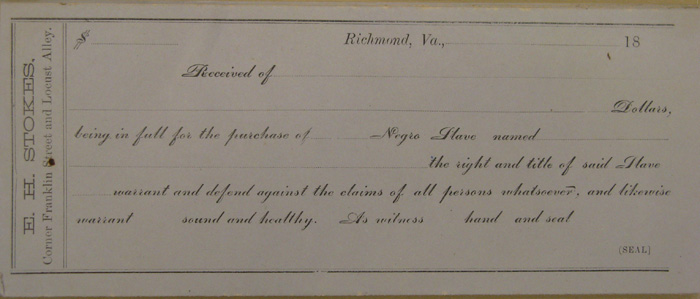 E. H. STOKES.
Corner Franklin Street and Locust Alley.
$ Richmond, Va., 18
Received of
Dollars,
being in full for the purchase of Negro Slave named
the right and title of said Slave
warrant and defend against the claims of all persons whatsoever, and likewise
warrant sound and healthy. As witness hand and seal
[SEAL]